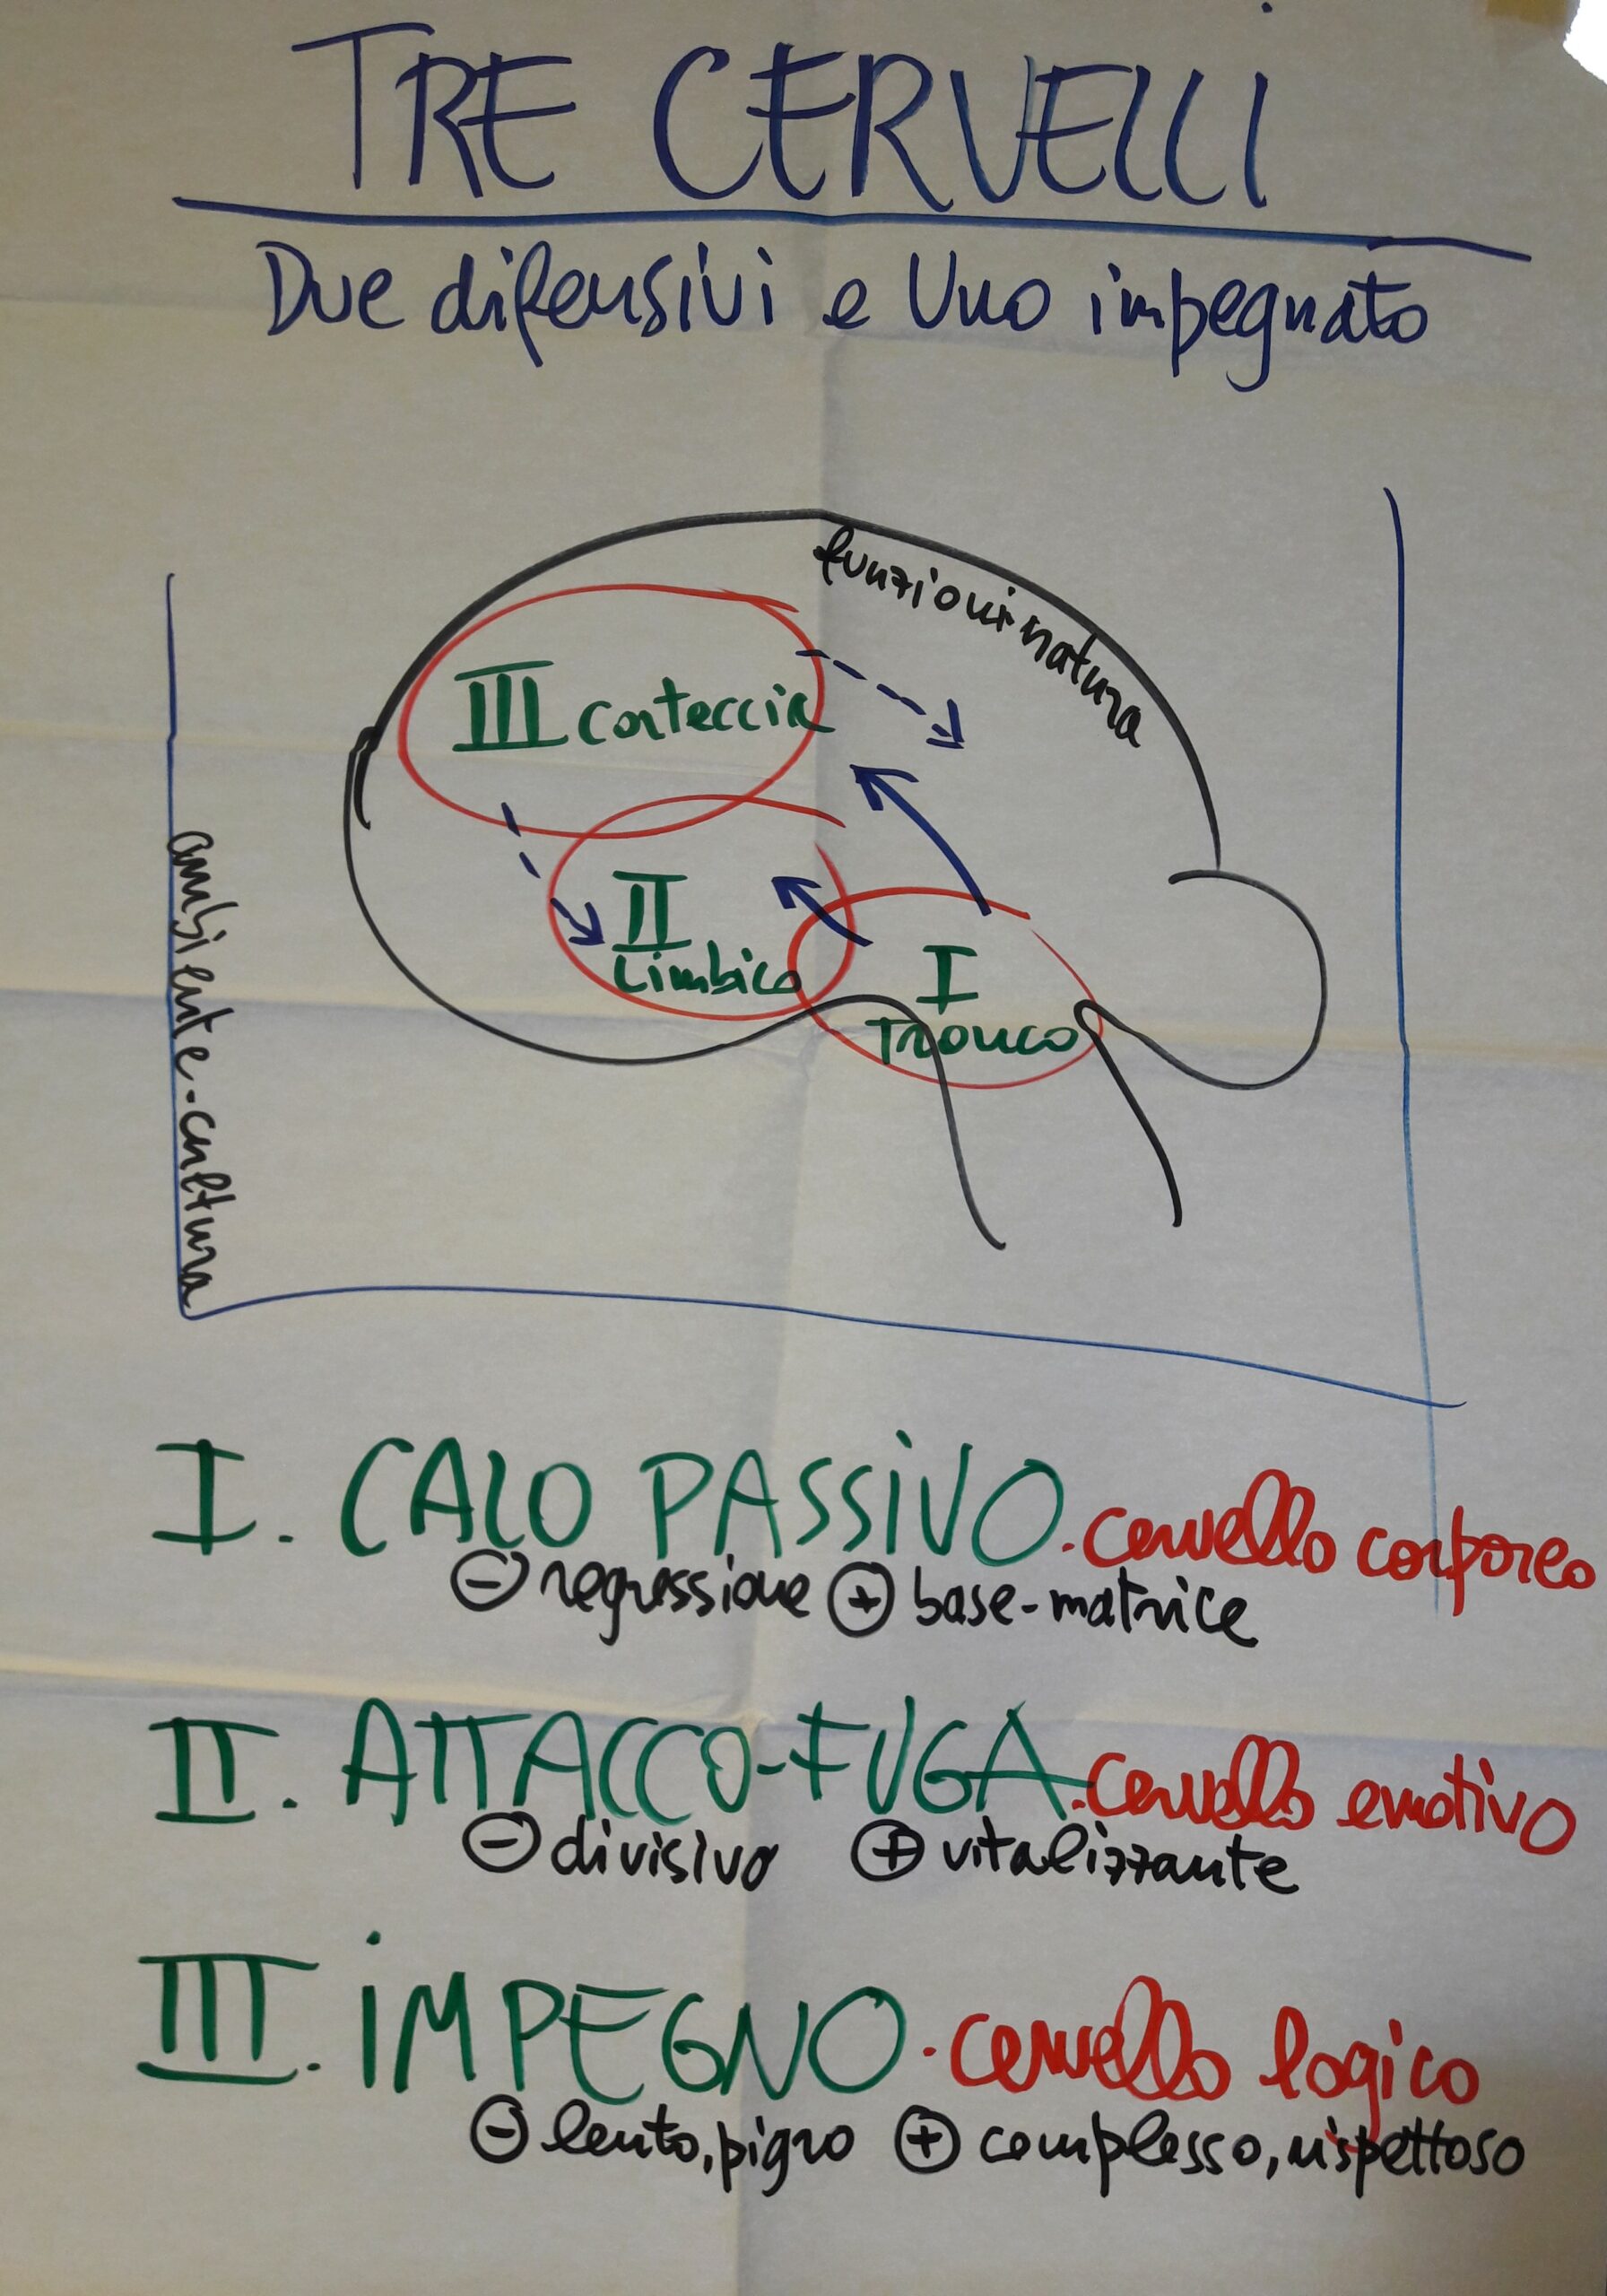 TRE CERVELLI
Due difensivi e Uno impegnato
funzioni natura
III corteccia
II
Limbico
I
Tronco
ambiente-cultura
I. CALO PASSIVO. cervello corporeo
⊖ regressione ⊕ base-matrice
II. ATTACCO-FUGA. cervello emotivo
⊖ divisivo ⊕ vitalizzante
III. IMPEGNO. cervello logico
⊖ lento, pigro ⊕ complesso, rispettoso